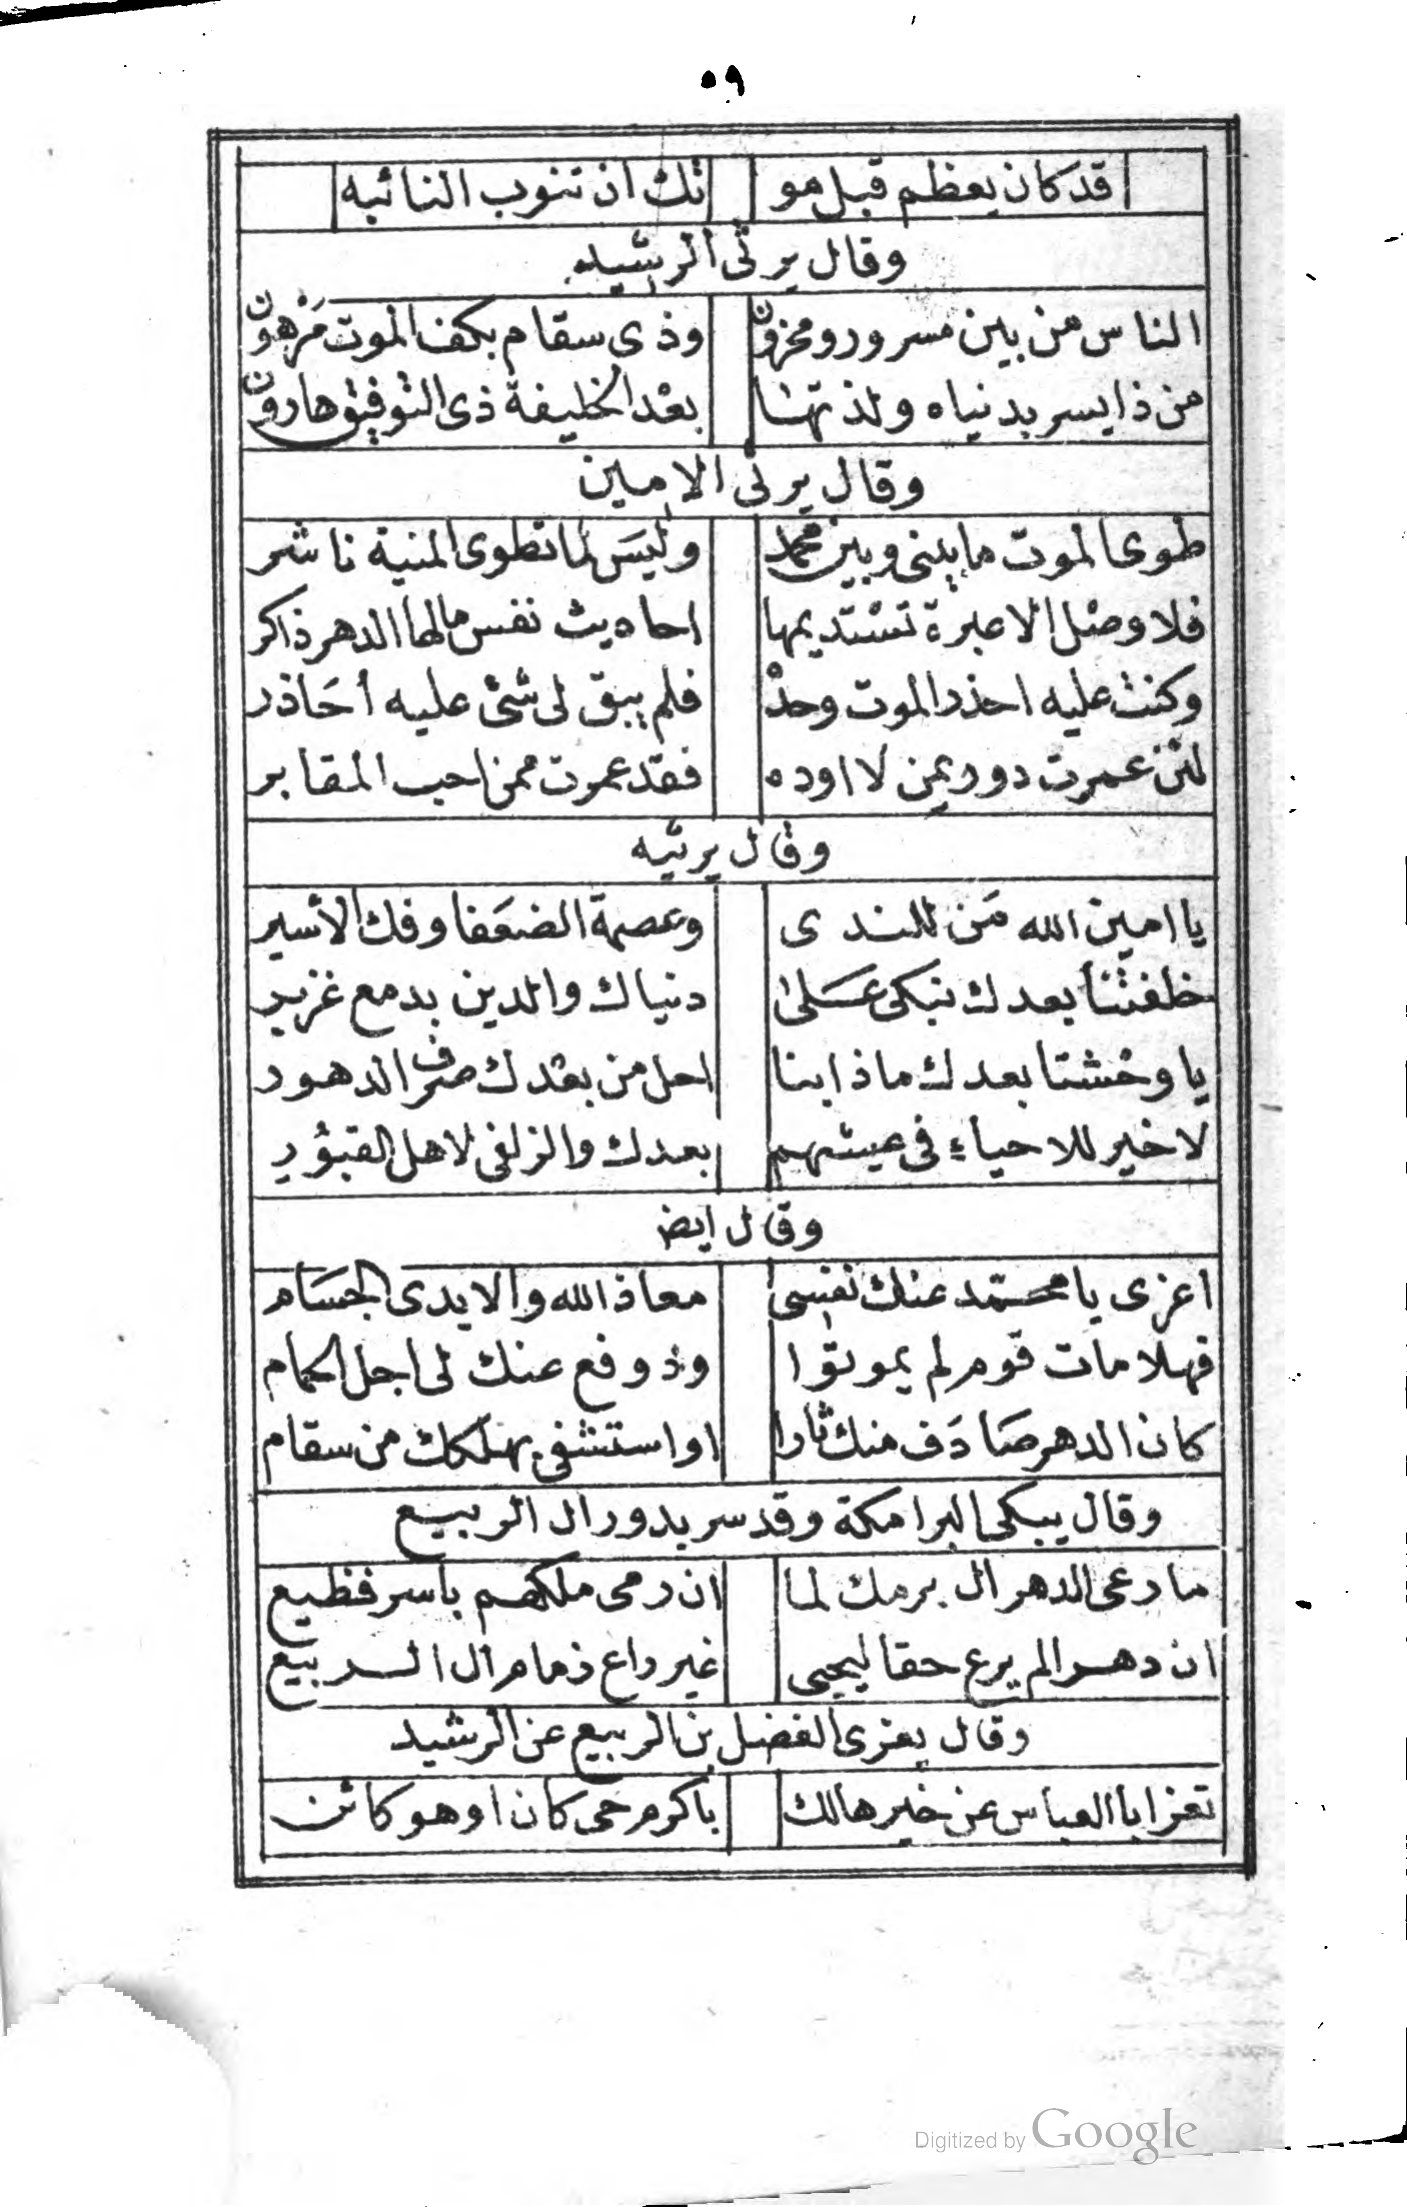 ٥٩
قد كان يعظم قبل مو تك ان تنوب النائبه
وقال يرثى الرشيد
الناس من بين مسرور ومحزون وذى سقام بكف الموت مَرْهون
من ذا يسر بدنياه ولذتها بعْد الخليفة ذى التوفيق هارون
وقال يرثى الامين
طوى الموت ما بينى وبين محمد وليسَ لما تطوى المنية ناشر
فلا وصْل الا عبرة تسْتديمها احاديث نفس مالها الدهر ذاكر
وكنت عليه احذر الموت وحدْ فلم يبق لى شئ عليه أحَاذر
لئن عمرت دور بمن لا اوده فقد عمرت ممن احب المقابر
وقال يرثيه
يا امين الله مَن للندى وعصمة الضعَفا وفك الأسير
خلفتنا بعدك نبكى عَلى دنياك والدين بدمع غزير
يا وحْشتا بعدك ماذا بنا احل من بعْدك صرف الدهور
لا خير للاحياء فى عيشهم بعدك والزلفى لاهل القبؤر
وقال ايض
اعزى يا محمّد عنك نفسى معاذ الله والايدى الجسَام
فهلا مات قوم لم يموتوا ودوفع عنك لى اجل الحمام
كان الدهر صَادَف منك ثارا او استشفى بهلكك من سقام
وقال يبكى البرامكة وقد سر بدور ال الربيع
ما رعى الدهر ال برمك لما ان رمى ملكهم باسر فظيع
ان دهرا لم يرع حقا ليحيى غير راع ذمام ال الربيع
وقال يعزى الفضل بن الربيع عن الرشيد
تعز ابا العباس عن خير هالك باكرم حى كان او هو كائن
Digitized by Google